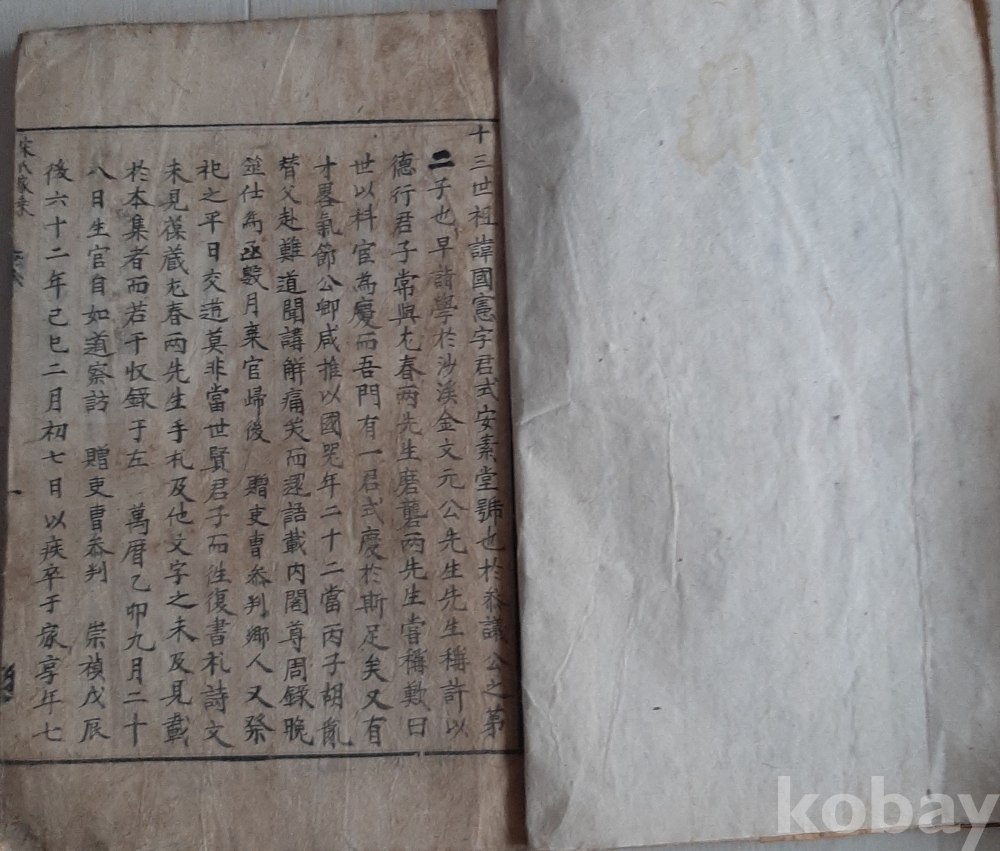 十三世祖諱國憲字君式安素堂號也於叅議公之第
二子也早請學於沙溪金文元公先生先生稱許以
德行君子常與尤春兩先生磨礱兩先生嘗稱歎曰
世以科宦為慶而吾門有一君式慶於斯足矣又有
才畧氣節公卿咸推以國器年二十二當丙子胡亂
替父赴難道聞講解痛哭而還語載內閣尊周錄晩
筮仕為丞數月棄官歸後 贈吏曹叅判鄉人又祭
祀之平日交道莫非當世賢君子而徃復書札詩文
未見葆藏尤春兩先生手札及他文字之未及見載
於本集者而若干収錄于左 萬曆乙卯九月二十
八日生官自如道察訪 贈吏曹叅判 崇禎戊辰
後六十二年己巳二月初七日以疾卒于家享年七
宋氏家乘
一
kobay